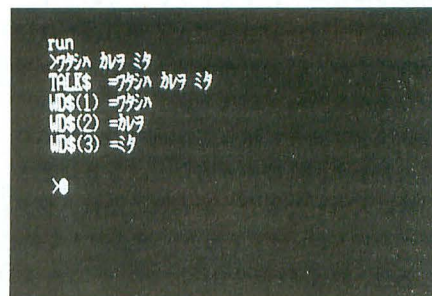 run
>ワタシハ カレヲ ミタ
TALK$ =ワタシハ カレヲ ミタ
WD$(1) =ワタシハ
WD$(2) =カレヲ
WD$(3) =ミタ
>